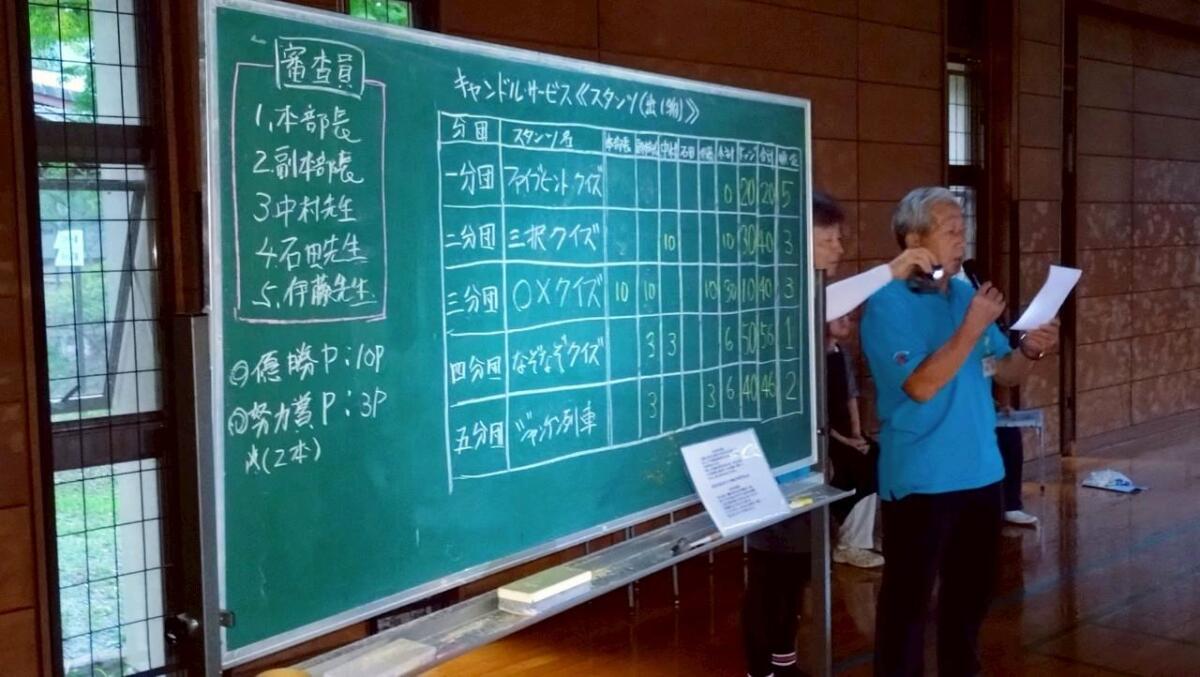 審査員
1.本部長
2.副本部長
3中村先生
4.石田先生
5.伊藤先生
◎優勝P:10P
◎努力賞P:3P
(2本)
キャンドルサービス《スタンツ(出し物)》
分団 スタンツ名 本部長 副本部長 中村 石田 伊藤 合計
一分団 ファイブヒントクイズ 0 20 20 5
二分団 三択クイズ 10 10 30 40 3
三分団 ○×クイズ 10 10 10 30 10 40 3
四分団 なぞなぞクイズ 3 3 6 50 56 1
五分団 ジャンケン列車 3 3 6 40 46 2